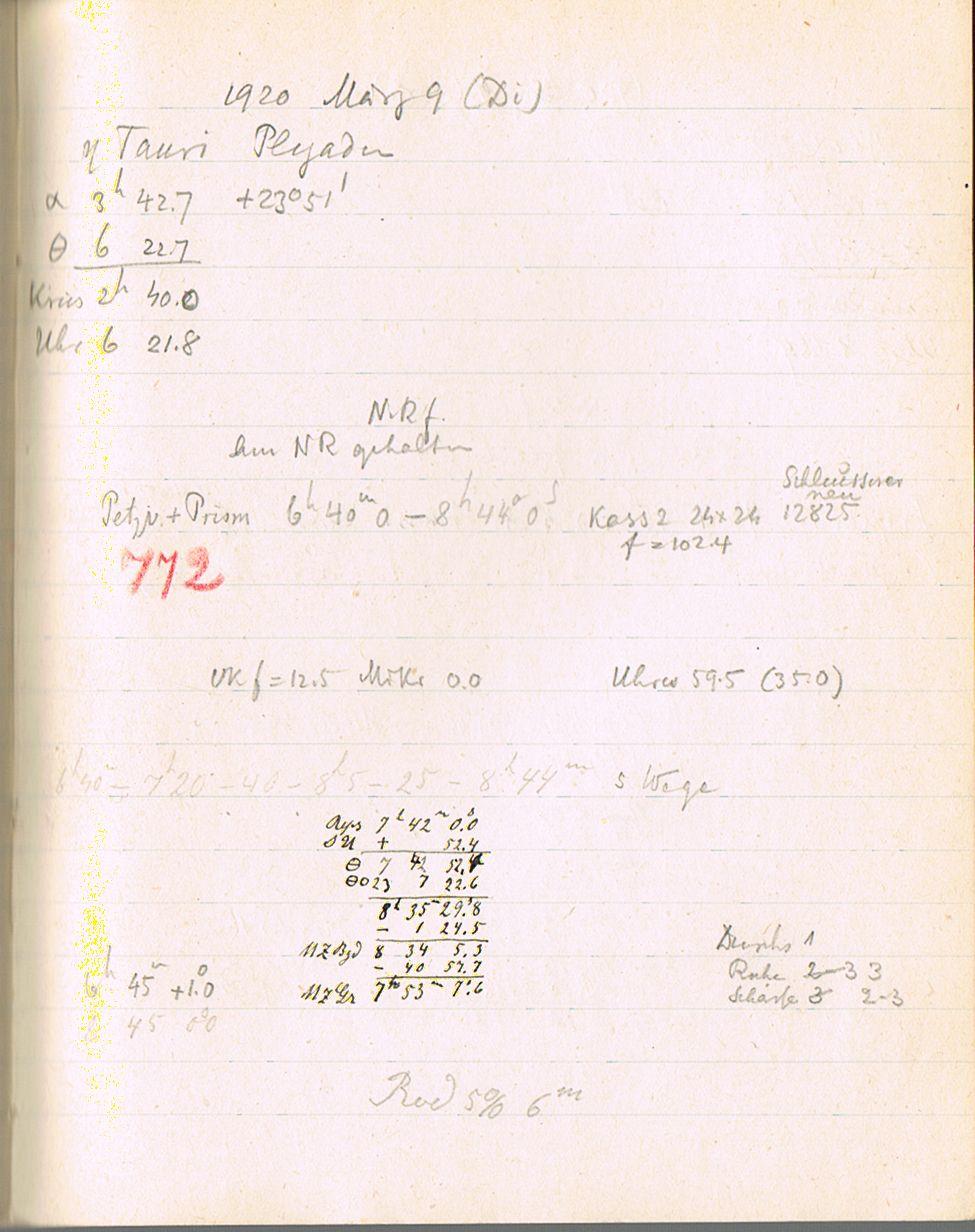 1920 März 9 (Di)
η Tauri Plejaden
α 3h 42.7 +23°51'
θ 6 22.7
Kreis 2h 40.0
Uhr 6 21.8
NRf.
Am NR gehalten
Petzv. + Prism 6h 40m 0 — 8h 44m 0s Kass 2 24×24 Schleussner neu 12825
f = 102.4
772
VK f = 12.5 Mikr 0.0 Uhr 59.5 (35.0)
6h 40m – 7h 20 – 40 – 8h 5 – 25 – 8h 44m 5 Wege
7h 42m 0.0s
+ 52.4
θ 7 42 52.4
θ0 23 7 22.6
8h 35m 29.8s
– 1 24.5
MZBgd 8 34 5.3
– 40 57.7
MZGr 7h 53m 7.6s
Durchs 1
Ruhe 2–3 3
Schärfe 3 2–3
6h 45m +1.0
45 0.0
Rod 5% 6m